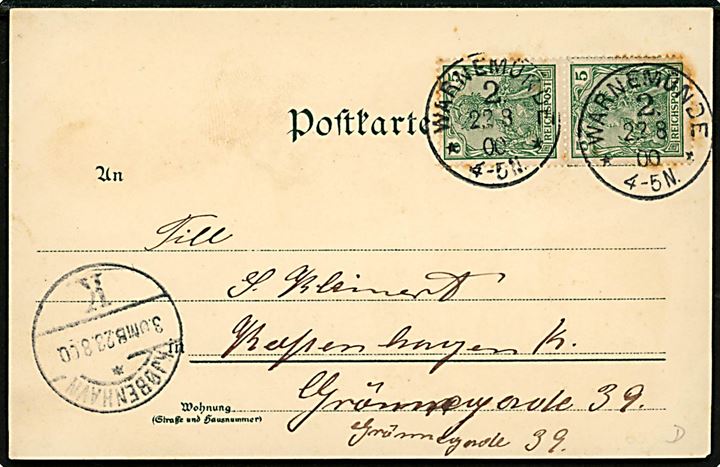 5 REICHSPOST
WARNEMÜNDE
2.
22 8
00
4-5N.
WARNEMÜNDE
2.
22 8
00
4-5N.
Postkarte
An
Till
S. Kleinert
in Kopenhagen K.
Grönnegade 39.
Wohnung
(Straße und Hausnummer)
Grönnegade 39.
KJØBENHAVN
K
3.OMB 23.8.00
D